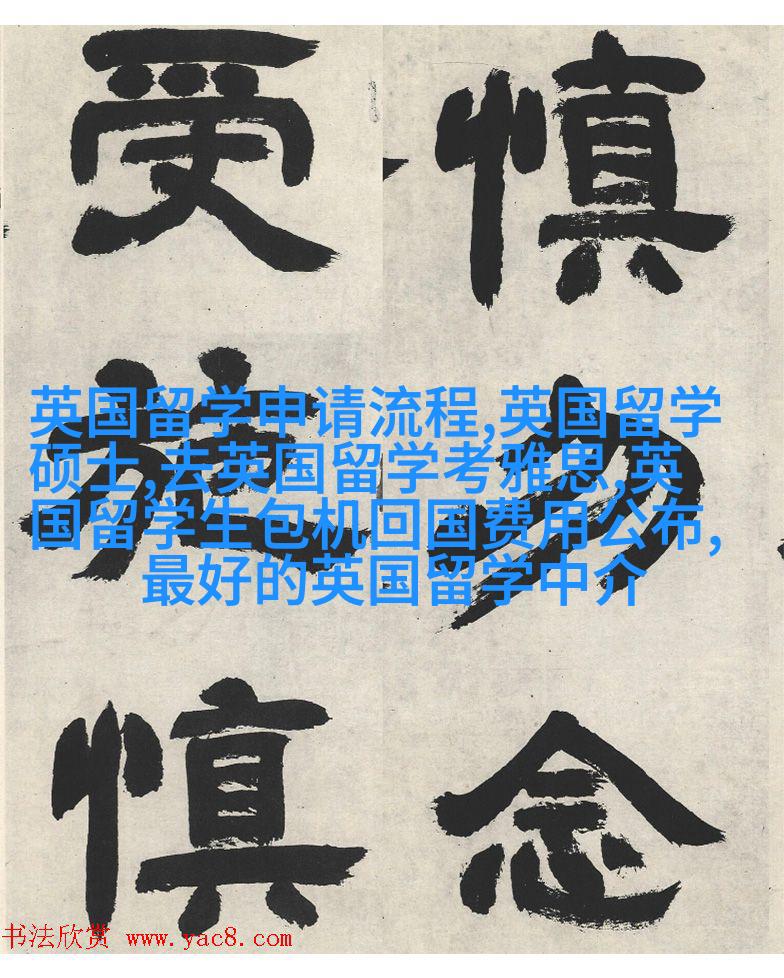 慎勿念
受施慎
英国留学申请流程,英国留学
硕士,去英国留学考雅思,英
国留学生包机回国费用公布,
最好的英国留学中介
书法欣赏 www.yac8.com